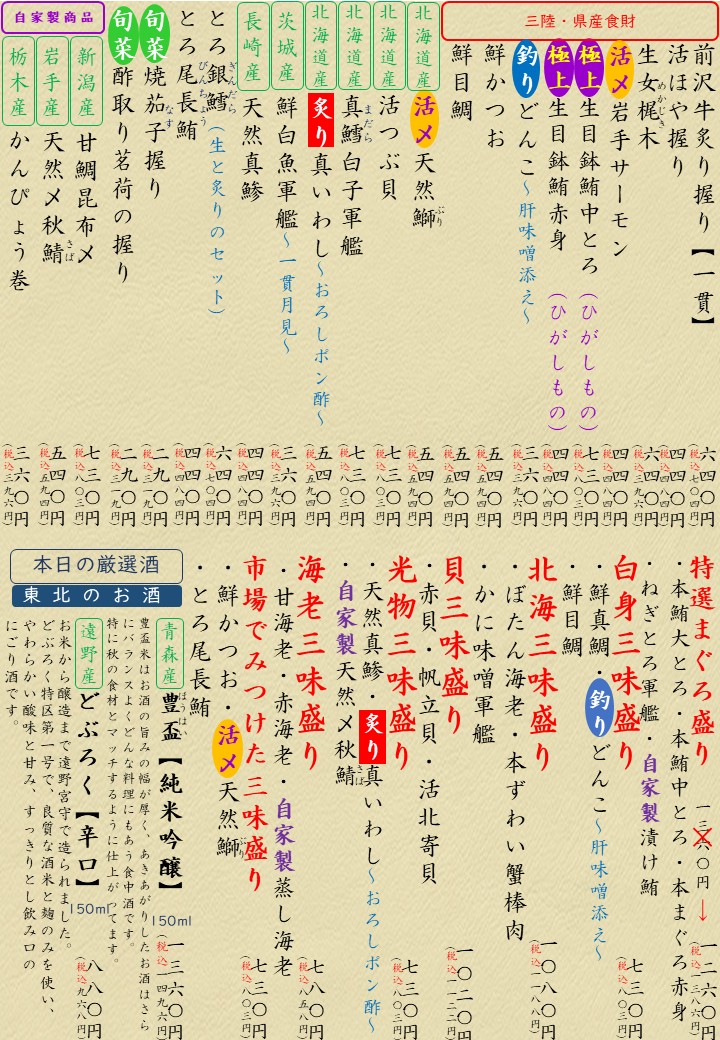 三陸・県産食財
前沢牛炙り握り【一貫】 六四〇円 (税込七〇四円)
活ほや握り 四四〇円 (税込四八四円)
生女梶木 めかじき 六四〇円 (税込七〇四円)
活〆 岩手サーモン 四四〇円 (税込四八四円)
極上 生目鉢鮪中とろ (ひがしもの) 七三〇円 (税込八〇三円)
極上 生目鉢鮪赤身 (ひがしもの) 四四〇円 (税込四八四円)
釣り どんこ~肝味噌添え~ 三六〇円 (税込三九六円)
鮮かつお 五四〇円 (税込五九四円)
鮮目鯛 五四〇円 (税込五九四円)
北海道産 活〆 天然鰤 ぶり 四四〇円 (税込四八四円)
北海道産 活つぶ貝 七三〇円 (税込八〇三円)
北海道産 真鱈白子軍艦 まだら 七三〇円 (税込八〇三円)
北海道産 炙り 真いわし~おろしポン酢~ 五四〇円 (税込五九四円)
茨城産 鮮白魚軍艦~一貫月見~ 三六〇円 (税込三九六円)
長崎産 天然真鯵 四四〇円 (税込四八四円)
とろ銀鱈 ぎんだら (生と炙りのセット) 六四〇円 (税込七〇四円)
とろ尾長鮪 びんちょう 四四〇円 (税込四八四円)
旬菜 焼茄子握り なす 二九〇円 (税込三一九円)
旬菜 酢取り茗荷の握り 二九〇円 (税込三一九円)
自家製商品
新潟産 甘鯛昆布〆 七三〇円 (税込八〇三円)
岩手産 天然〆秋鯖 さば 五四〇円 (税込五九四円)
栃木産 かんぴょう巻 三六〇円 (税込三九六円)
特選まぐろ盛り 一三六〇円→一二六〇円 (税込一三八六円)
・本鮪大とろ・本鮪中とろ・本まぐろ赤身
・ねぎとろ軍艦・自家製漬け鮪
白身三味盛り 七三〇円 (税込八〇三円)
・鮮真鯛・釣りどんこ~肝味噌添え~
・鮮目鯛
北海三味盛り 一〇八〇円 (税込一一八八円)
・ぼたん海老・本ずわい蟹棒肉
・かに味噌軍艦
貝三味盛り 一〇二〇円 (税込一一二二円)
・赤貝・帆立貝・活北寄貝
光物三味盛り 七三〇円 (税込八〇三円)
・天然真鯵・炙り真いわし~おろしポン酢~
・自家製天然〆秋鯖 さば
海老三味盛り 七八〇円 (税込八五八円)
・甘海老・赤海老・自家製蒸し海老
市場でみつけた三味盛り 七三〇円 (税込八〇三円)
・鮮かつお・活〆天然鰤 ぶり
・とろ尾長鮪
本日の厳選酒
東北のお酒
青森産 豊盃 ほうはい【純米吟醸】 150ml 一三六〇円 (税込一四九六円)
豊盃米はお酒の旨みの幅が厚く、あきあがりしたお酒はさら
にバランスよくどんな料理にもあう食中酒です。
特に秋の食材とマッチするように仕上がってます。
遠野産 どぶろく【辛口】 150ml 八八〇円 (税込九六八円)
お米から醸造まで遠野宮守で造られました。
どぶろく特区第一号で、良質な酒米と麹のみを使い、
やわらかい酸味と甘み、すっきりとし飲み口の
にごり酒です。